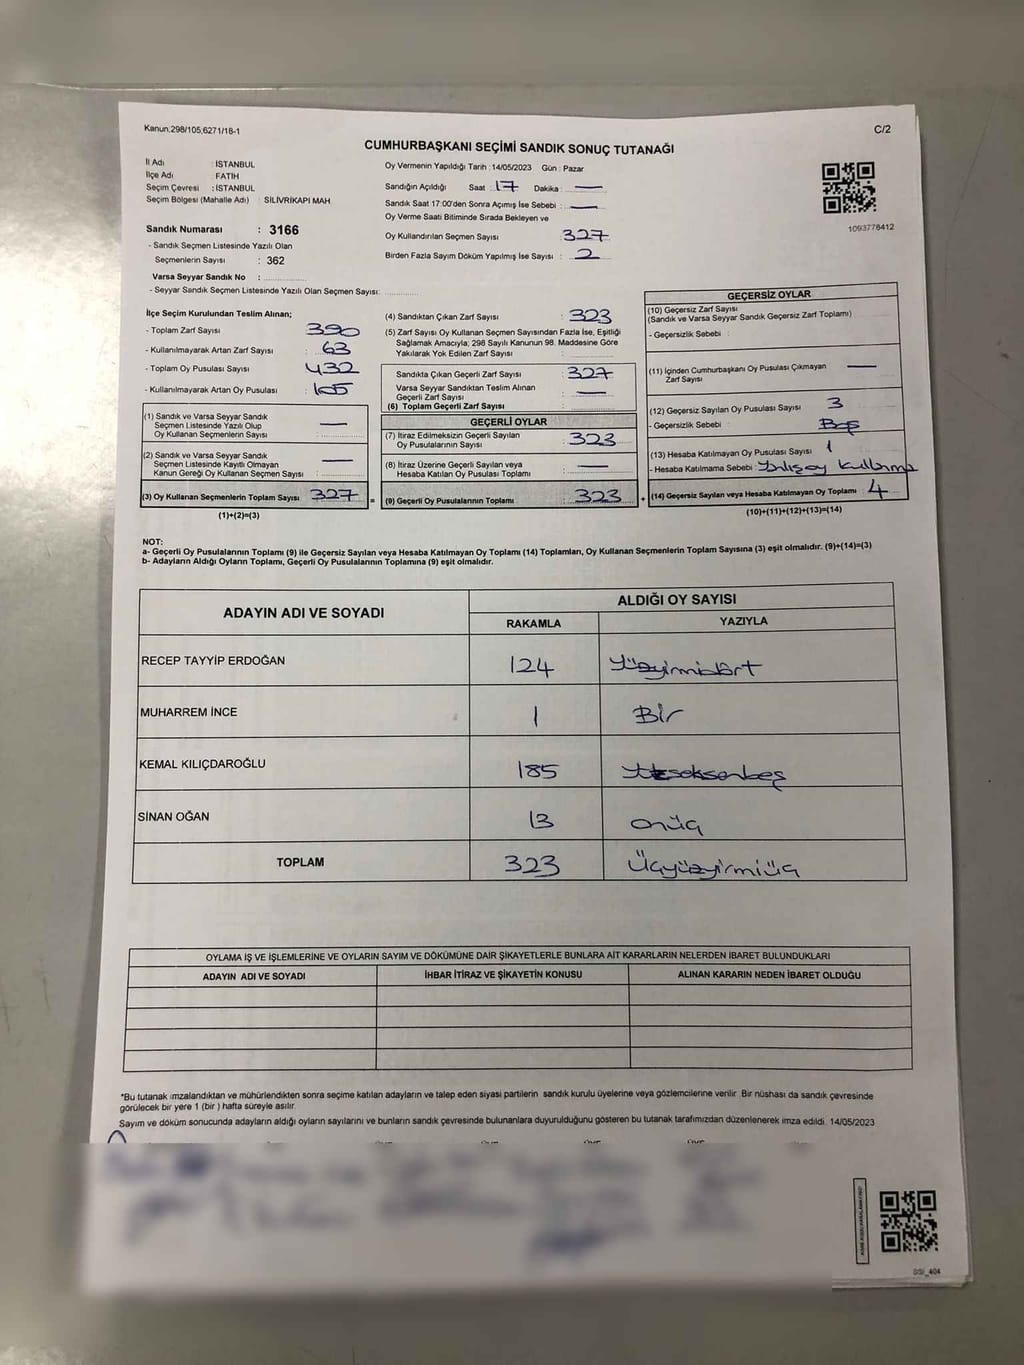 Kanun:298/105,6271/18-1
C/2
CUMHURBAŞKANI SEÇİMİ SANDIK SONUÇ TUTANAĞI
İl Adı : İSTANBUL
İlçe Adı : FATİH
Seçim Çevresi : İSTANBUL
Seçim Bölgesi (Mahalle Adı) : SİLİVRİKAPI MAH
Sandık Numarası : 3166
- Sandık Seçmen Listesinde Yazılı Olan
Seçmenlerin Sayısı : 362
Varsa Seyyar Sandık No :
- Seyyar Sandık Seçmen Listesinde Yazılı Olan Seçmen Sayısı:
Oy Vermenin Yapıldığı Tarih :14/05/2023 Gün : Pazar
Sandığın Açıldığı Saat : 17 Dakika : —
Sandık Saat 17:00'den Sonra Açımış İse Sebebi : —
Oy Verme Saati Bitiminde Sırada Bekleyen ve
Oy Kullandırılan Seçmen Sayısı : 327
Birden Fazla Sayım Döküm Yapılmış İse Sayısı : 2
1093776412
İlçe Seçim Kurulundan Teslim Alınan;
- Toplam Zarf Sayısı : 390
- Kullanılmayarak Artan Zarf Sayısı : 63
- Toplam Oy Pusulası Sayısı : 432
- Kullanılmayarak Artan Oy Pusulası : 105
(1) Sandık ve Varsa Seyyar Sandık
Seçmen Listesinde Yazılı Olup
Oy Kullanan Seçmenlerin Sayısı : —
(2) Sandık ve Varsa Seyyar Sandık
Seçmen Listesinde Kayıtlı Olmayan
Kanun Gereği Oy Kullanan Seçmen Sayısı : —
(3) Oy Kullanan Seçmenlerin Toplam Sayısı : 327 =
(1)+(2)=(3)
(4) Sandıktan Çıkan Zarf Sayısı : 323
(5) Zarf Sayısı Oy Kullanan Seçmen Sayısından Fazla İse, Eşitliği
Sağlamak Amacıyla; 298 Sayılı Kanunun 98. Maddesine Göre
Yakılarak Yok Edilen Zarf Sayısı :
Sandıkta Çıkan Geçerli Zarf Sayısı : 327
Varsa Seyyar Sandıktan Teslim Alınan
Geçerli Zarf Sayısı : —
(6) Toplam Geçerli Zarf Sayısı :
GEÇERLİ OYLAR
(7) İtiraz Edilmeksizin Geçerli Sayılan
Oy Pusulalarının Sayısı : 323
(8) İtiraz Üzerine Geçerli Sayılan veya
Hesaba Katılan Oy Pusulası Toplamı : —
(9) Geçerli Oy Pusulalarının Toplamı : 323 +
GEÇERSİZ OYLAR
(10) Geçersiz Zarf Sayısı
(Sandık ve Varsa Seyyar Sandık Geçersiz Zarf Toplamı)
- Geçersizlik Sebebi :
(11) İçinden Cumhurbaşkanı Oy Pusulası Çıkmayan
Zarf Sayısı : —
(12) Geçersiz Sayılan Oy Pusulası Sayısı : 3
- Geçersizlik Sebebi : Boş
(13) Hesaba Katılmayan Oy Pusulası Sayısı : 1
- Hesaba Katılmama Sebebi : Yanlış oy kullanma
(14) Geçersiz Sayılan veya Hesaba Katılmayan Oy Toplamı : 4
(10)+(11)+(12)+(13)=(14)
NOT:
a- Geçerli Oy Pusulalarının Toplamı (9) ile Geçersiz Sayılan veya Hesaba Katılmayan Oy Toplamı (14) Toplamları, Oy Kullanan Seçmenlerin Toplam Sayısına (3) eşit olmalıdır. (9)+(14)=(3)
b- Adayların Aldığı Oyların Toplamı, Geçerli Oy Pusulalarının Toplamına (9) eşit olmalıdır.
ADAYIN ADI VE SOYADI
ALDIĞI OY SAYISI
RAKAMLA YAZIYLA
RECEP TAYYİP ERDOĞAN 124 Yüzyirmidört
MUHARREM İNCE 1 Bir
KEMAL KILIÇDAROĞLU 185 Yüzseksenbeş
SİNAN OĞAN 13 onüç
TOPLAM 323 Üçyüzyirmiüç
OYLAMA İŞ VE İŞLEMLERİNE VE OYLARIN SAYIM VE DÖKÜMÜNE DAİR ŞİKAYETLERLE BUNLARA AİT KARARLARIN NELERDEN İBARET BULUNDUKLARI
ADAYIN ADI VE SOYADI İHBAR İTİRAZ VE ŞİKAYETİN KONUSU ALINAN KARARIN NEDEN İBARET OLDUĞU
*Bu tutanak imzalandıktan ve mühürlendikten sonra seçime katılan adayların ve talep eden siyasi partilerin sandık kurulu üyelerine veya gözlemcilerine verilir. Bir nüshası da sandık çevresinde
görülecek bir yere 1 (bir ) hafta süreyle asılır.
Sayım ve döküm sonucunda adayların aldığı oyların sayılarını ve bunların sandık çevresinde bulunanlara duyurulduğunu gösteren bu tutanak tarafımızdan düzenlenerek imza edildi. 14/05/2023
SSİ_404